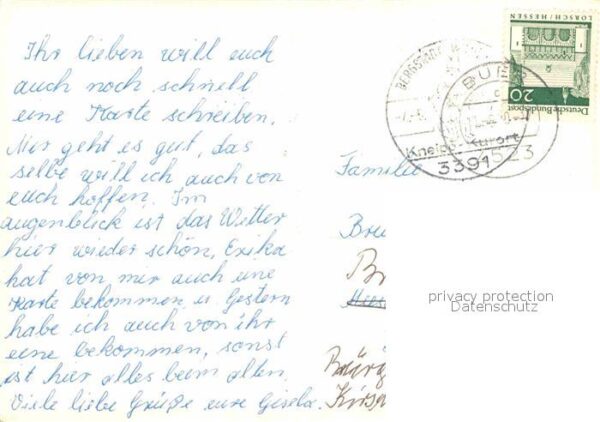 Ihr lieben will euch
auch noch schnell
eine Karte schreiben.
Mir geht es gut, das
selbe will ich auch von
euch hoffen. Im
augenblick ist das Wetter
hier wieder schön, Erika
hat von mir auch eine
Karte bekommen u. Gestern
habe ich auch von ihr
eine bekommen, sonst
ist hier alles beim alten
Viele liebe Grüße eure Gisela.
LORSCH/HESSEN
20
Deutsche Bundespost
BERGSTADT
Kneipp
Kurort
3391
7523
Familie
privacy protection
Datenschutz